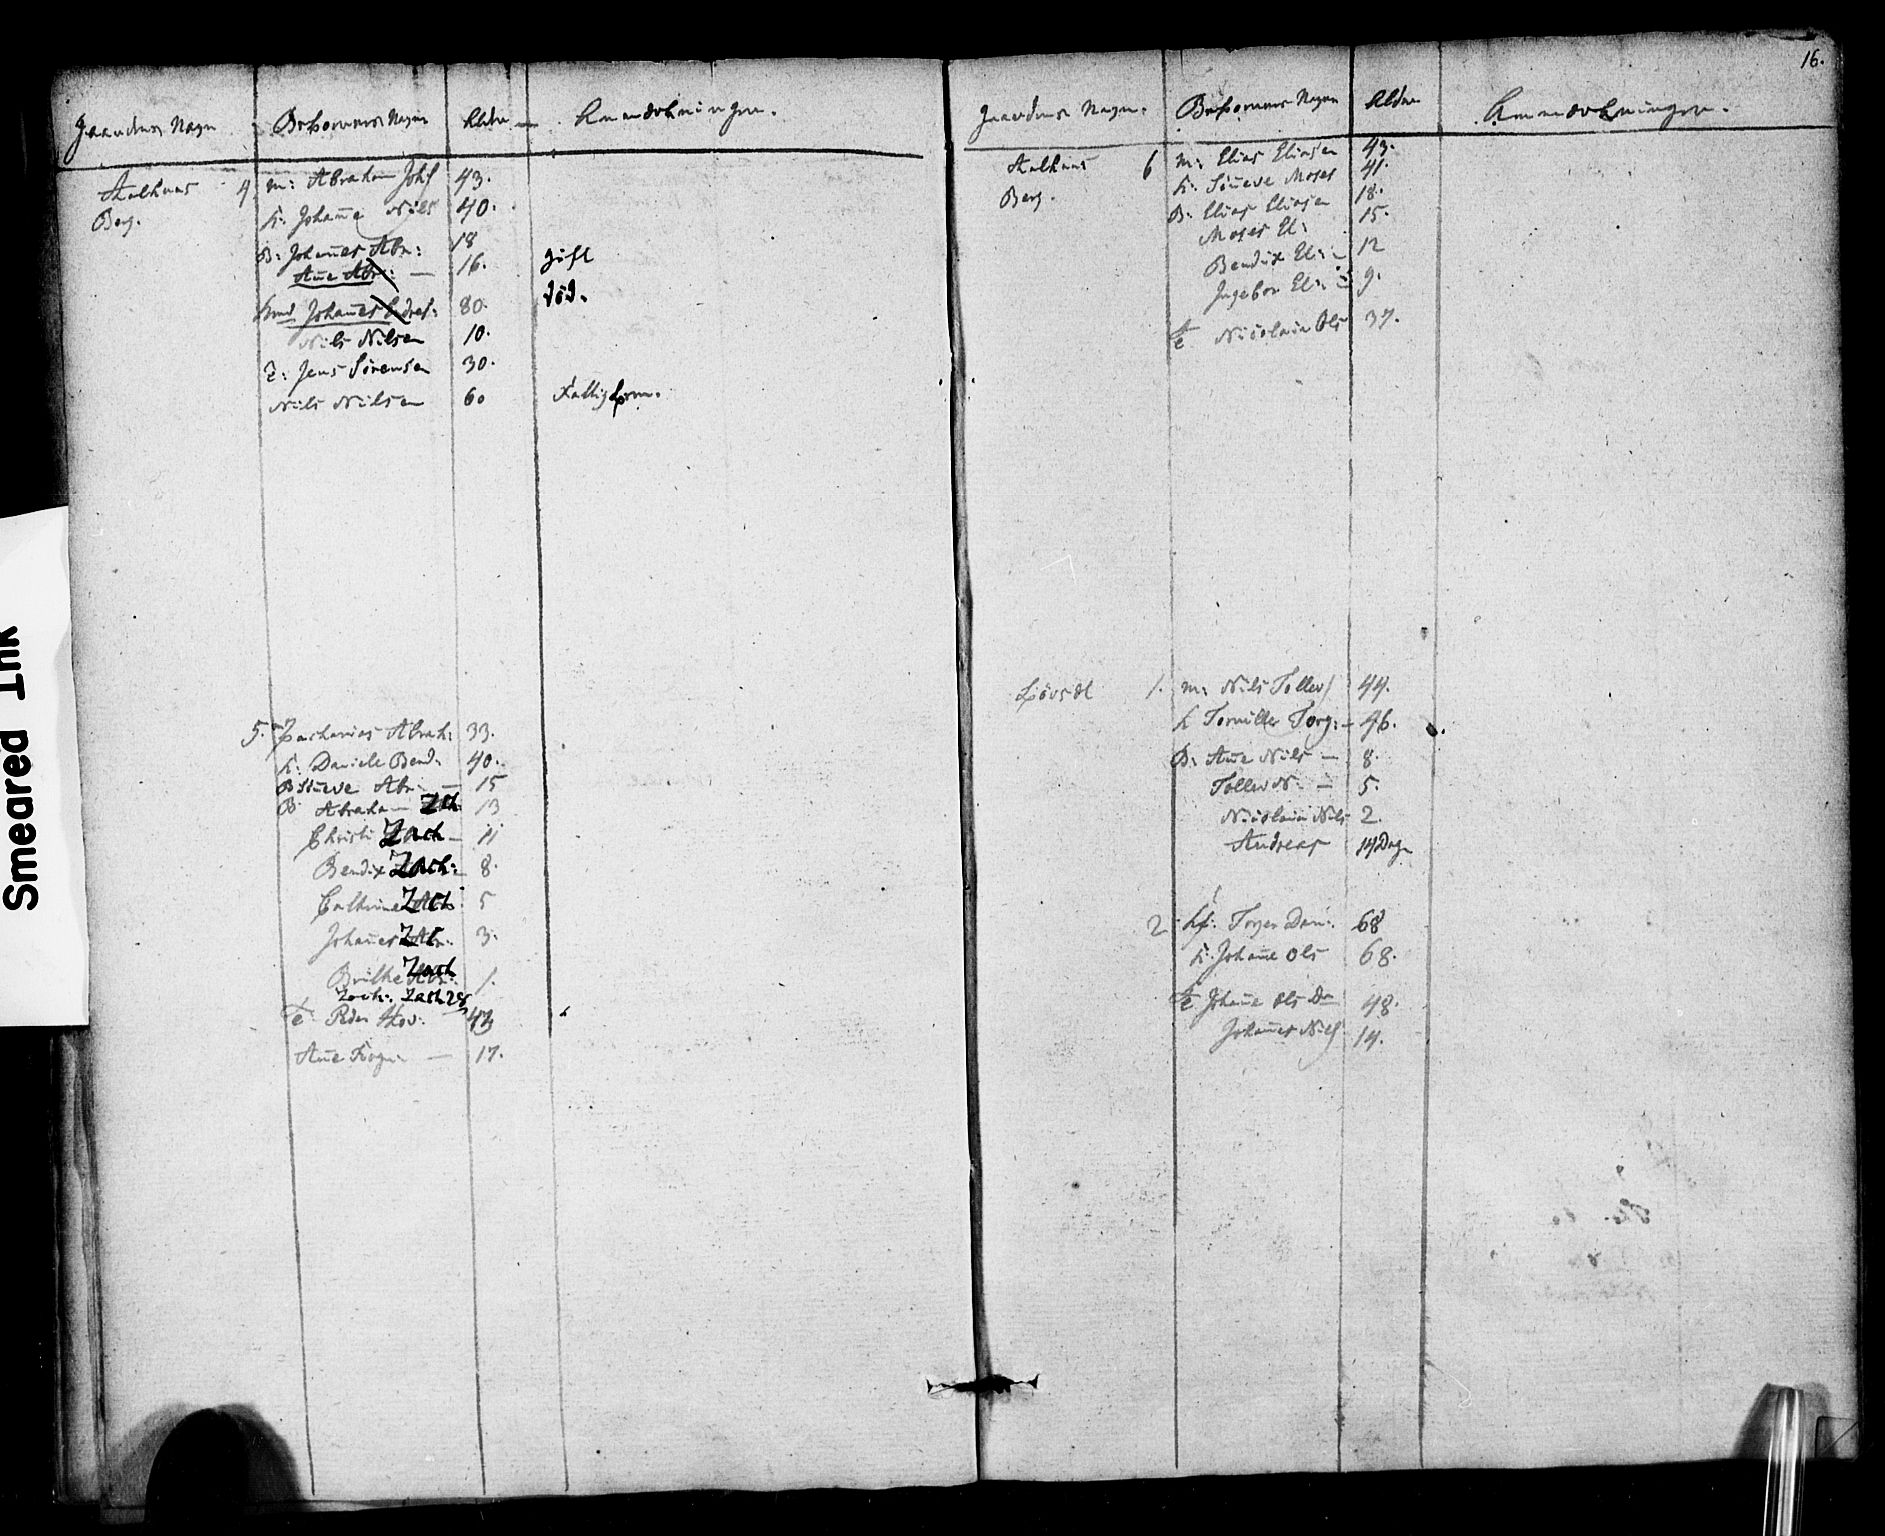 Gaardenes Navn Beboernes Navn Alder Anmærkninger.
Aalhuus 4 m: Abraham Johs 43.
Berg. K. Johañe Nils 40.
B: Johañes Abr: 18
Añe Abr: — 16. gift
Johañes 80. död.
Nils Nilsen 10.
T: Jens Sörensen 30.
Nils Nilsen 60 Fattiglem.
5. Zacharias Abrah: 33.
K. Daniele Bend. 40.
B Siñeve Abr. — 15
B Abraham Zach 13
Christi Zach — 11
Bendix Zach: 8.
Cathrine Zach 5
Johañes Zach 3.
Brithe Zach 1.
Zach: Zach 28
T: Peder
Añe — 17.
16.
Gaardenes Navn. Beboernes Navn Alder Anmærkninger.
Aalhuus 6 m: Elias Eliasen 43.
Berg. K. Siñeve Moses 41.
B: Elias Eliasen 18.
Moses El: 15.
Bendix El: 12
Ingebor El: 9.
T Nicolaia Ols 37.
Lövset 1. m: Nils Tollevs 44.
K Tornille Torg: — 46.
B: Añe Nils — 8.
Tollev N. — 5.
Nicolaia Nils 2.
Andreas 14 Dage
2 Torger Dan: 68
K. Johañe Ols 68.
T Johañe Ols Dr 48.
Johañes Nils 14.
Smeared Ink